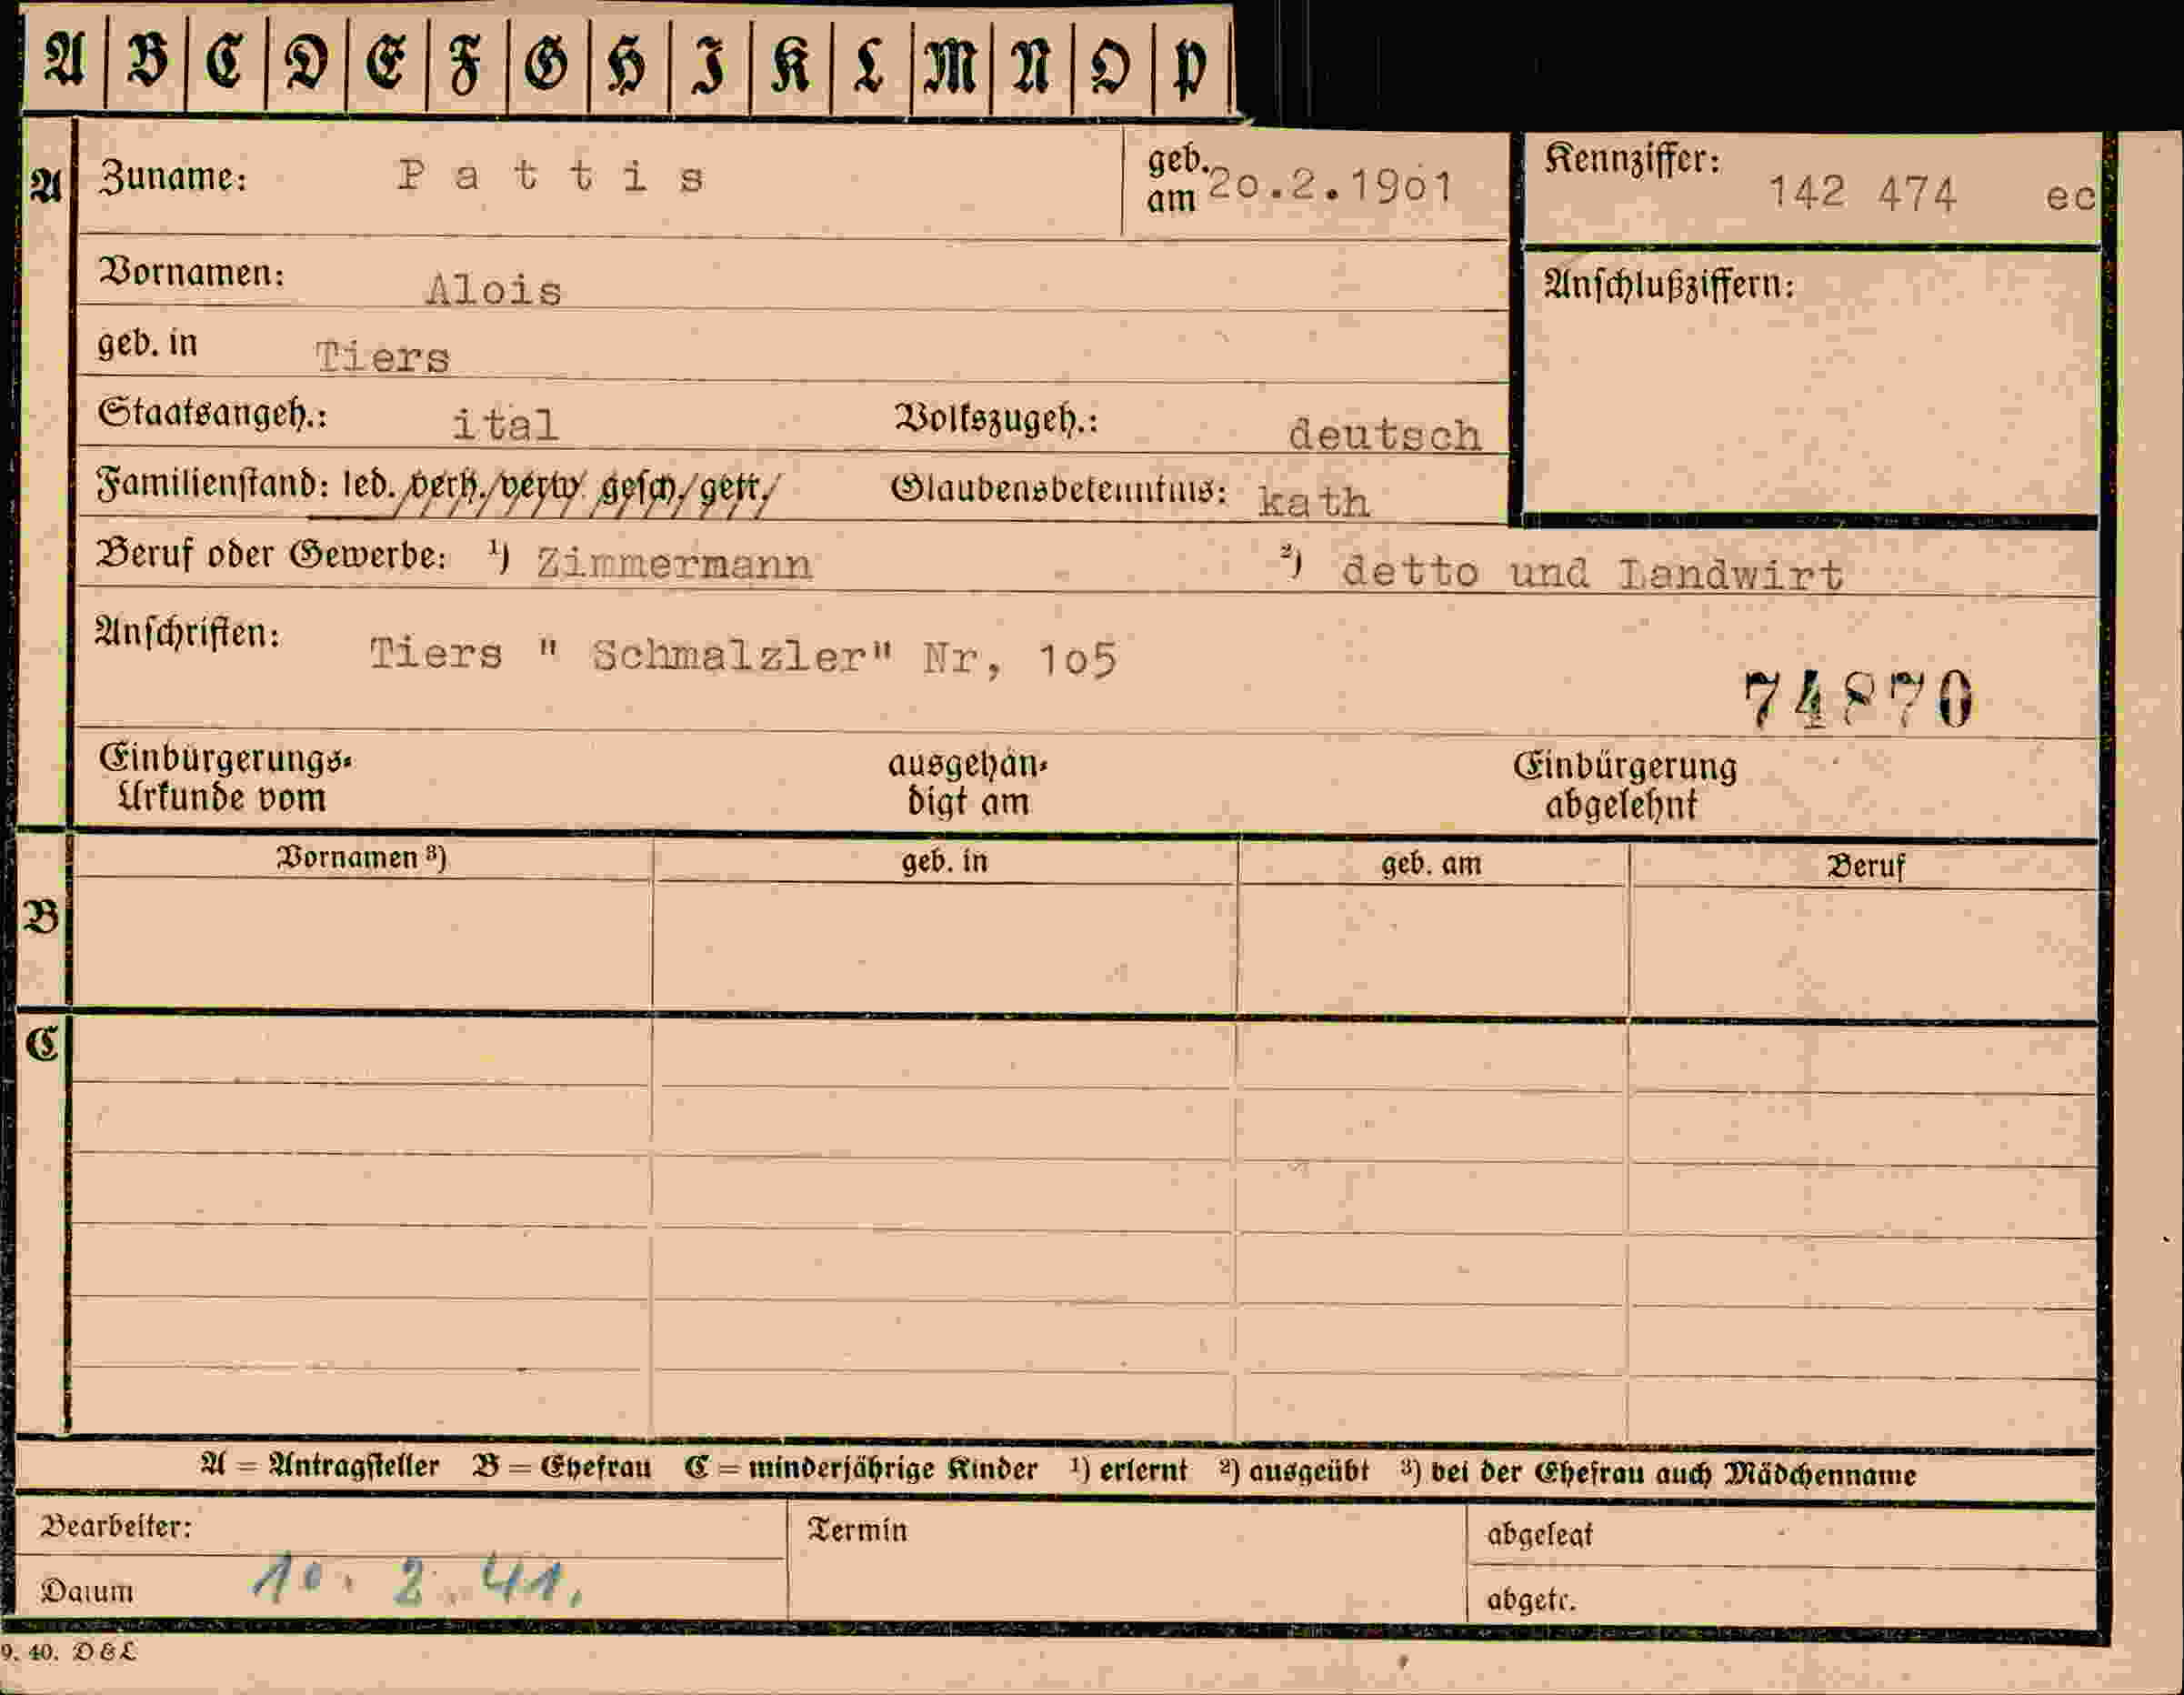 A B C D E F G H I K L M N O P
A Zuname: Pattis geb. am 20.2.1901 Kennziffer: 142 474 ec
Vornamen: Alois Anschlußziffern:
geb. in Tiers
Staatsangeh.: ital Volkszugeh.: deutsch
Familienstand: led. verh. verw. gesch. getr. Glaubensbekenntnis: kath
Beruf oder Gewerbe: ¹) Zimmermann ²) detto und Landwirt
Anschriften: Tiers " Schmalzler" Nr, 1o5
74870
Einbürgerungs- ausgehän- Einbürgerung
Urkunde vom digt am abgelehnt
Vornamen ³) geb. in geb. am Beruf
B
C
A = Antragsteller B = Ehefrau C = minderjährige Kinder ¹) erlernt ²) ausgeübt ³) bei der Ehefrau auch Mädchenname
Bearbeiter: Termin abgelegt
Datum 10. 2. 41. abgetr.
9. 40. D & L